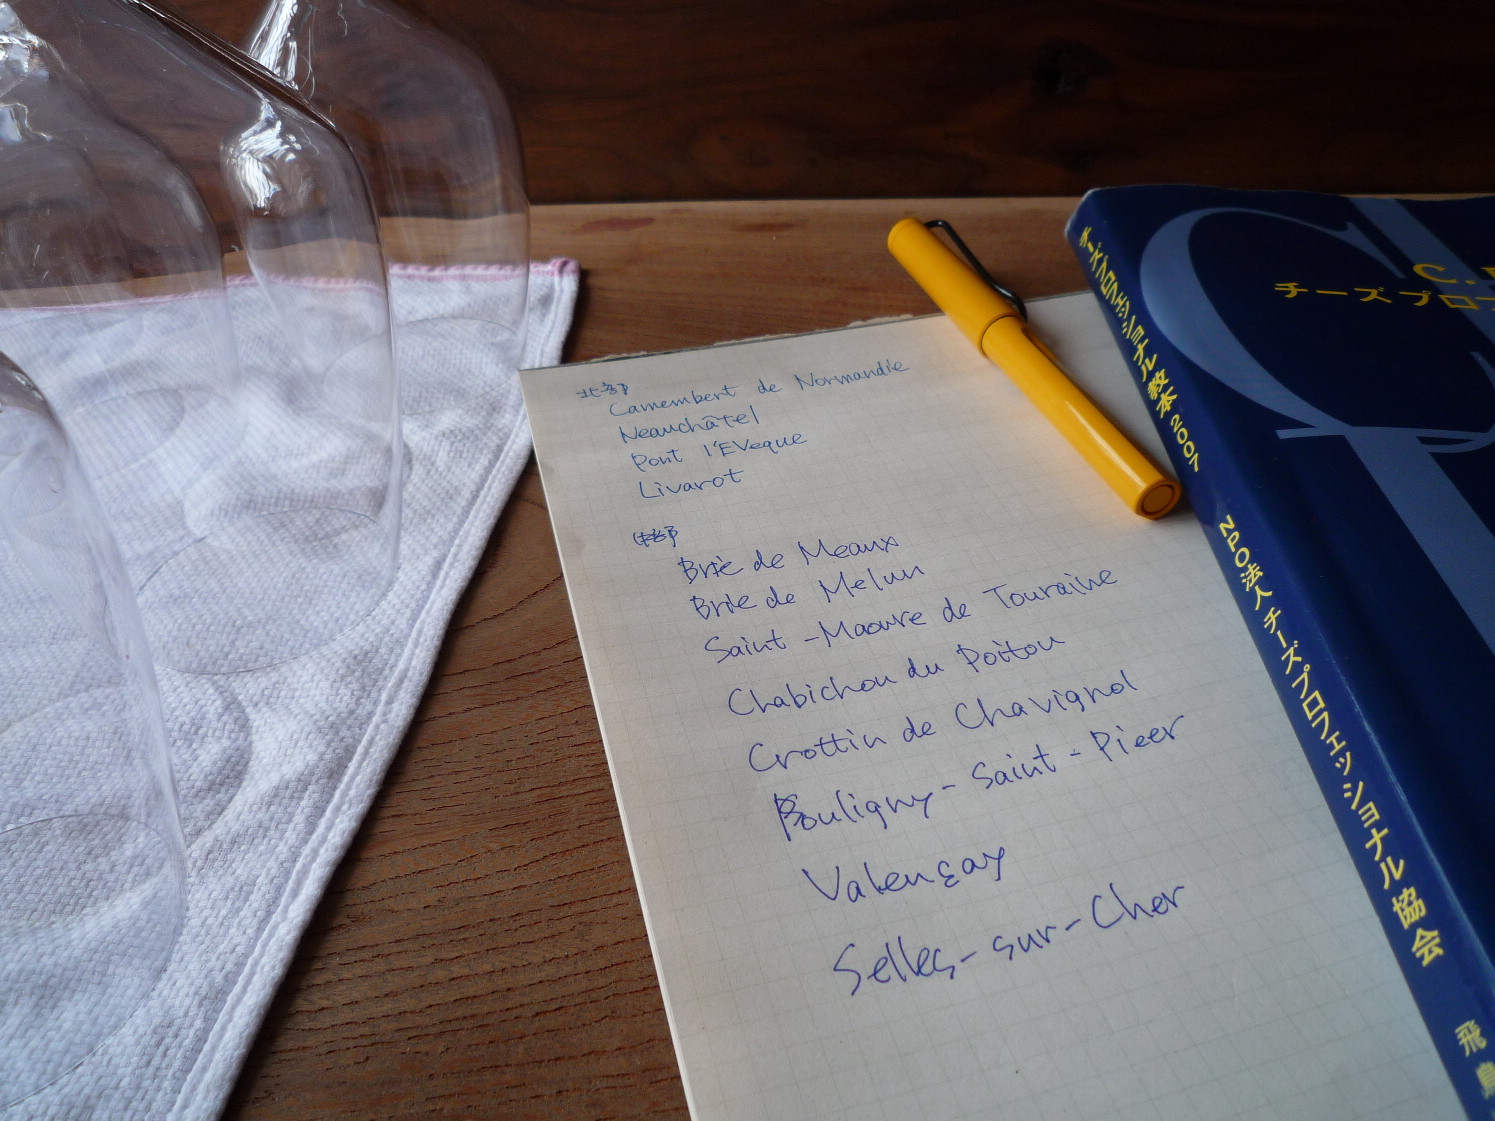 北部
Camembert de Normandie
Neauchâtel
Pont l'EVeque
Livarot
Brie de Meaux
Brie de Melun
Saint-Maoure de Touraine
Chabichou du Poitou
Crottin de Chavignol
Pouligny-Saint-Pieer
Valençay
Selles-sur-Cher
チーズプロフェッショナル教本2007
NPO法人チーズプロフェッショナル協会
飛鳥
C.
チーズプロフ